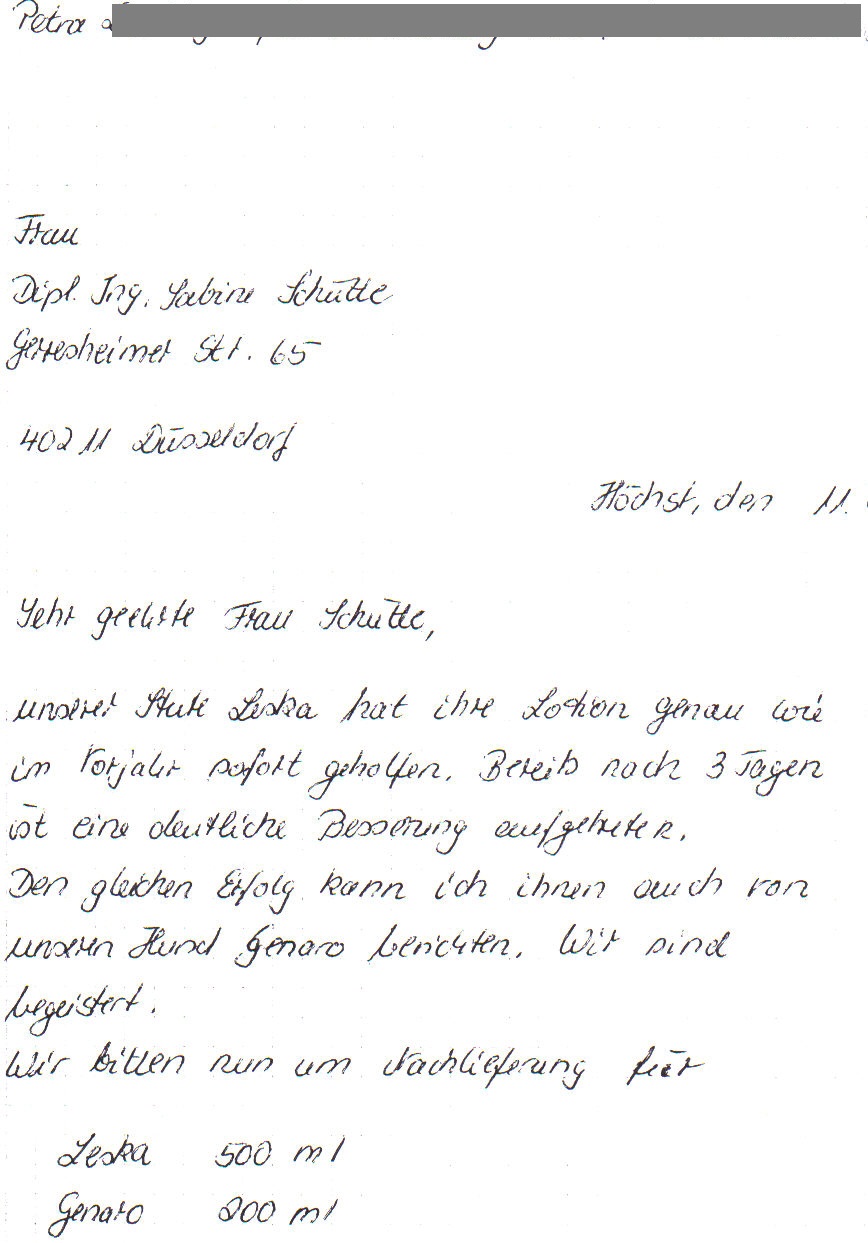 Petra
Frau
Dipl. Ing. Sabine Schütte
Gerresheimer Str. 65
40211 Düsseldorf
Höchst, den 11.
Sehr geehrte Frau Schütte,
unserer Stute Leska hat ihre Lotion genau wie
im Vorjahr sofort geholfen. Bereits nach 3 Tagen
ist eine deutliche Besserung aufgetreten.
Den gleichen Erfolg kann ich ihnen auch von
unseren Hund Genaro berichten. Wir sind
begeistert.
Wir bitten nun um Nachlieferung für
Leska 500 ml
Genaro 200 ml